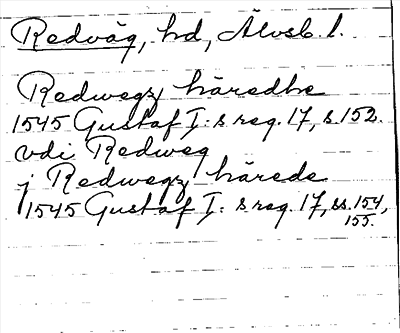 Redväg, hd, Älvsb. l.
Redwegz häredhe
1545 Gustaf I: s reg. 17, s 152.
vdi Redweg
j Redwegz härede
1545 Gustaf I: s reg. 17, ss. 154,
155.